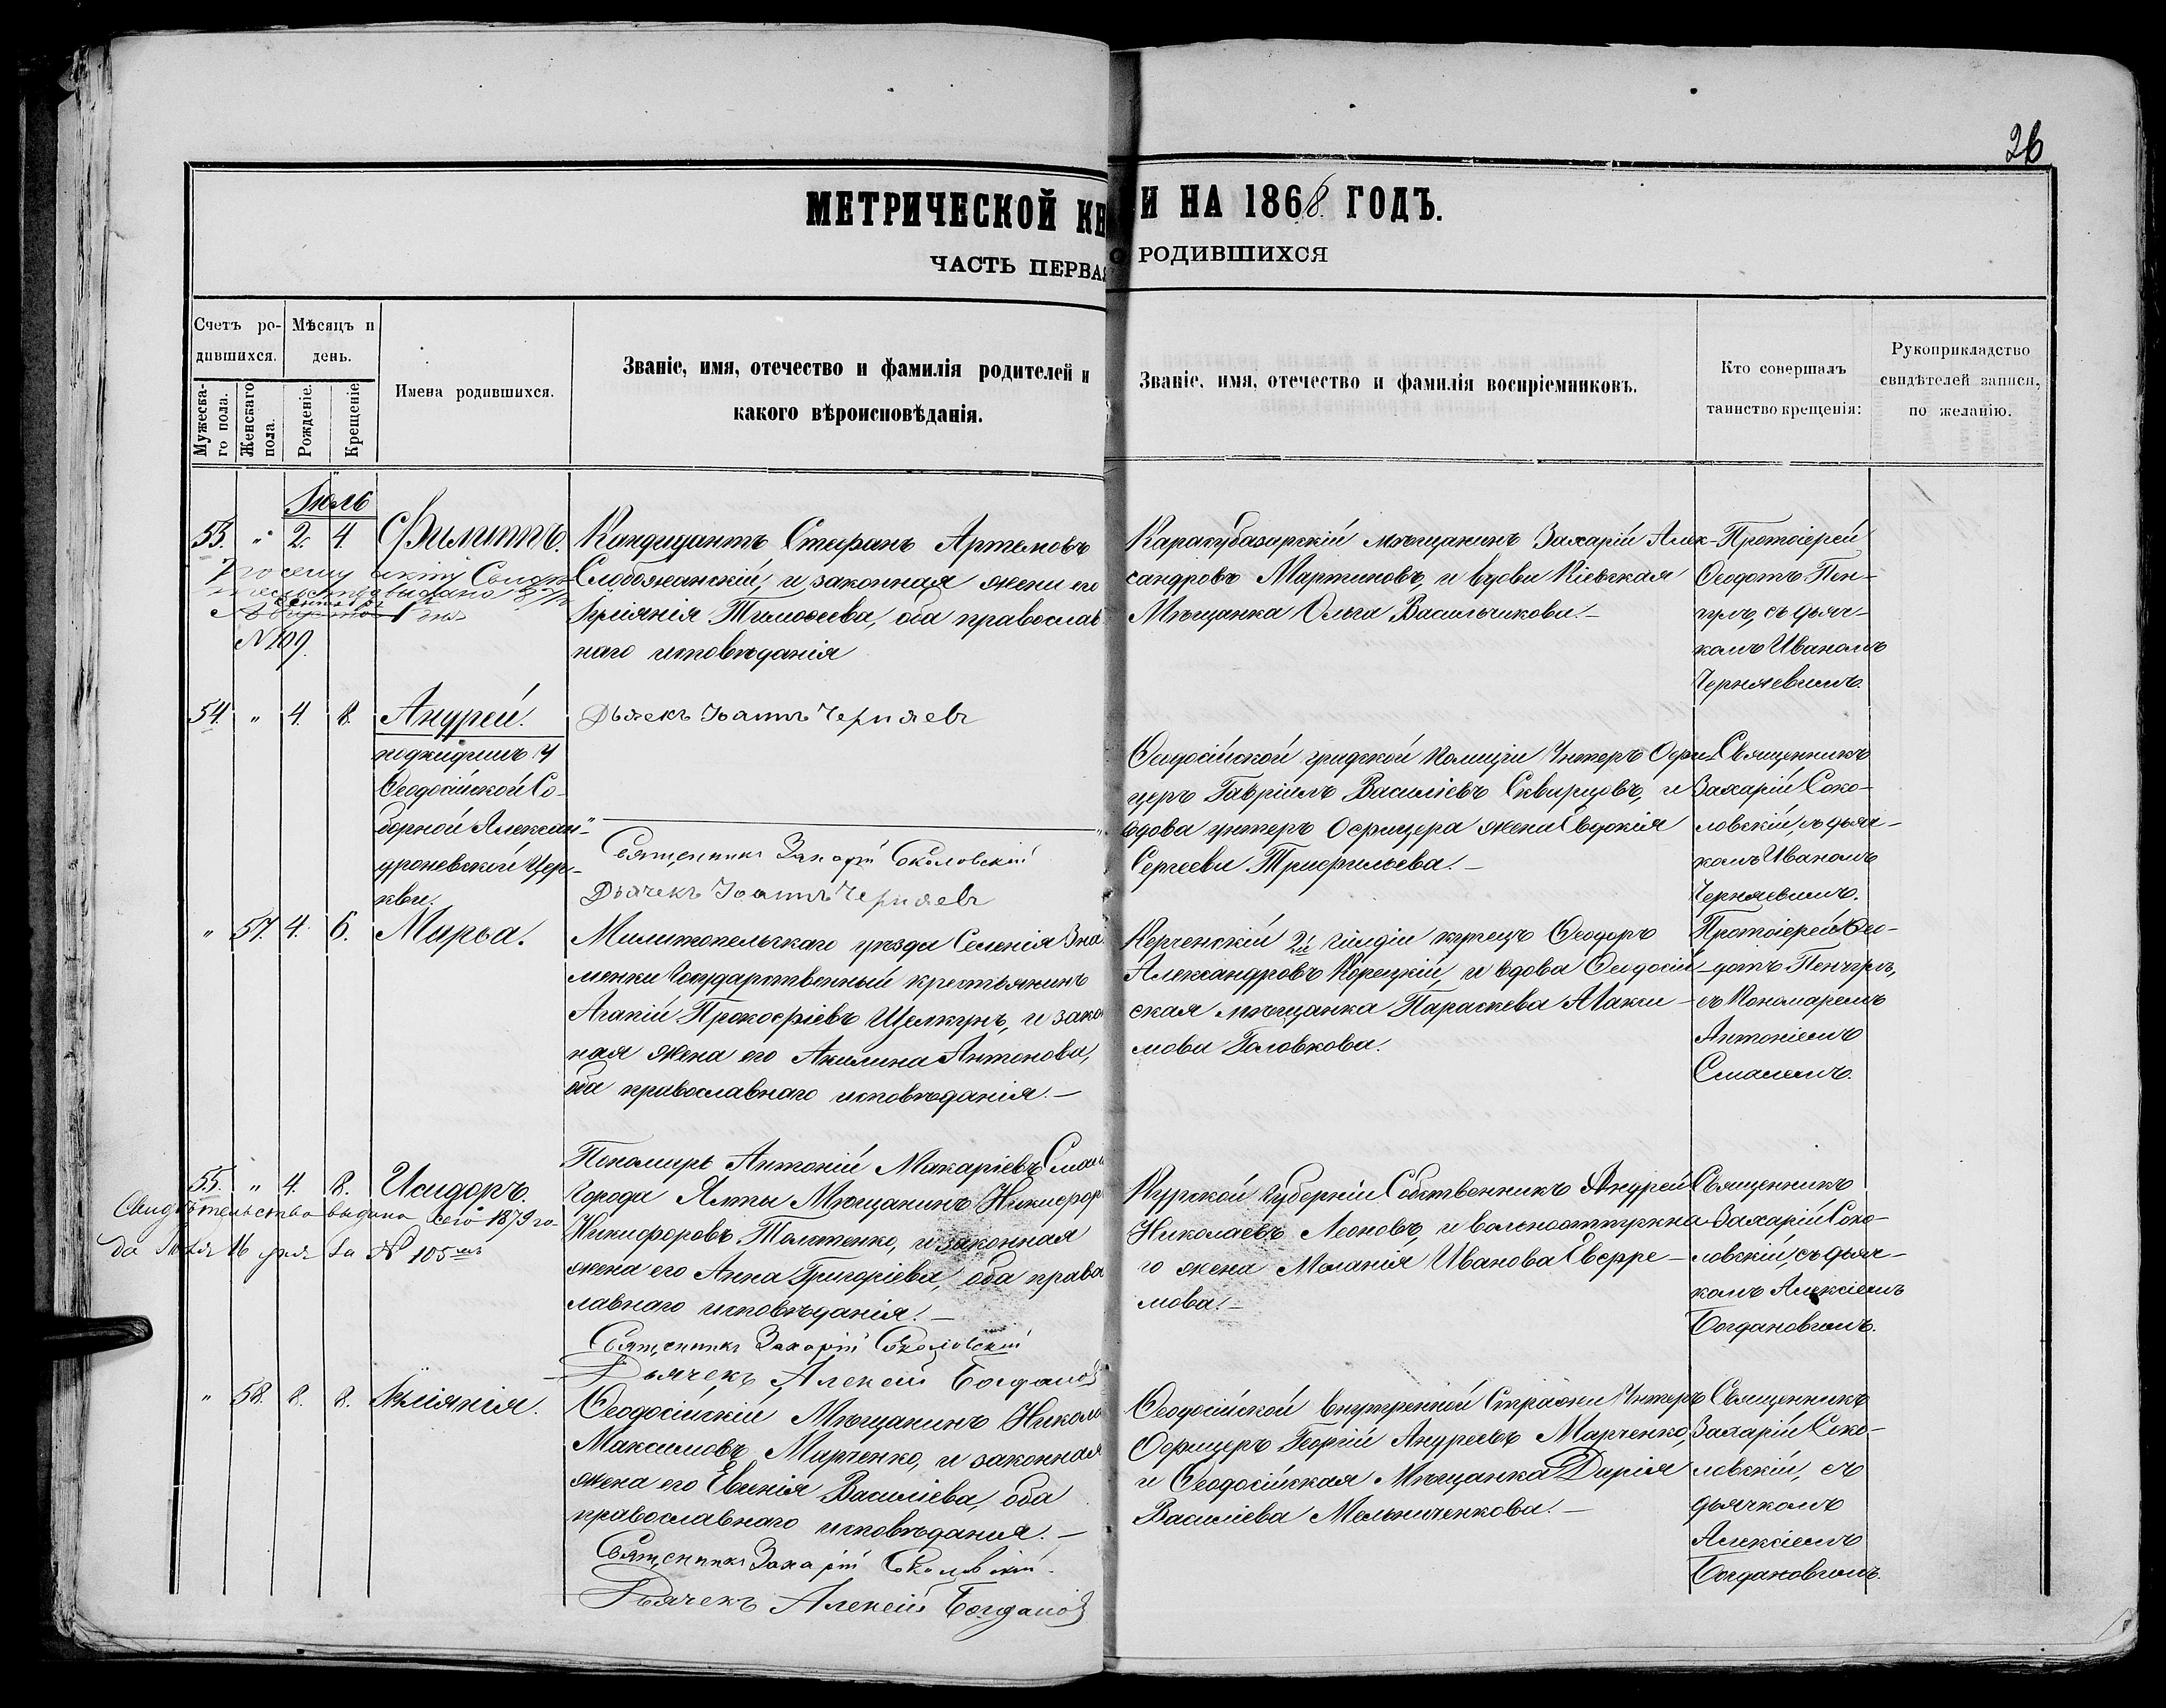 26
МЕТРИЧЕСКОЙ КН И НА 1868. ГОДЪ.
ЧАСТЬ ПЕРВАЯ О РОДИВШИХСЯ
Счетъ ро-
дившихся.
Мужеска-
го пола.
Женскаго
пола.
Мѣсяцъ и
день.
Рожденіе.
Крещеніе.
Имена родившихся.
Званіе, имя, отечество и фамилія родителей и
какого вѣроисповѣданія.
Званіе, имя, отечество и фамилія воспріемниковъ.
Кто совершалъ
таинство крещенія:
Рукоприкладство
свидѣтелей записи,
по желанію.
Іюль
53. " 2. 4. Филиппъ.
По сему акту
выдано
N 109.
Кандидантъ Стефанъ Артемовъ
Слобожанскій, и законная жена его
Іуліянія Тимоѳеева, оба православ
наго исповѣданія
Карасубазарскій мѣщанинъ Захарій Алек-
сандровъ Мартиновъ, и вдова Кіевская
Мѣщанка Ольга Васильчикова.-
Протоіерей
Ѳеодотъ Пен-
съ дьяч-
комъ Иваномъ
Черняевимъ.
54. " 4. 8. Андрей.
подкидишъ ч
Ѳеодосійской Со-
борной Алексан-
дроневской Цер-
кви.
Дьячекъ Іоаннъ Черняевъ
Священникъ Захарій Соколовскій
Дьячекъ Іоаннъ Черняевъ
Ѳеодосійской градской полиціи Унтеръ Офи-
церъ Гавріилъ Василіевъ Скварцовъ, и
вдова унтеръ Офицера жена Евдокія
Сергеева Трифильева.-
Священникъ
Захарій Соко-
ловскій съ дьяч-
комъ Иваномъ
Черняевимъ.
" 57. 4. 6. Марѳа.
Милитопельскаго уѣзда Селенія Зна
менки Государственный крестьянинъ
Агапій Прокофіевъ Щелкунъ, и закон
ная жена его Акилина Антонова,
оба православнаго исповѣданія.-
Пономарь Антоній Макаріевъ
Керченскій 2й гилдіи купецъ Ѳеодоръ
Александровъ Корецкій, и вдова Ѳеодосій-
ская мѣщанка Параскева Макси-
мова Головкова.
Протоіерей Ѳео-
дотъ
съ Пономаремъ
Антоніемъ
55. " 4. 8. Исидоръ.
Свидѣтельство выдано сего 1879 го-
да 16 дня за № 105мъ
Города Ялты Мѣщанинъ Никифоръ
Никифоровъ Толстенко, и законная
жена его Анна Григоріева, оба право
лавнаго исповѣданія.-
Священникъ Захарій Соколовскій
Дьячекъ Алексѣй Богданов
Курской губерніи Собственникъ Андрей
Николаевъ Леоновъ, и вольноотпущена-
го жена Меланія Иванова Еверре-
мова.-
Священникъ
Захарій Соко-
ловскій, съ дьяч-
комъ Алексіемъ
Богдановимъ.
" 58. 8. 8. Іуліянія.
Ѳеодосійскій Мѣщанинъ Никола
Максимовъ Марченко, и законная
жена его Евгенія Василіева, оба
православнаго исповѣданія.-
Священникъ Захарій Соколовскій.
Дьячекъ Алексѣй Богданов
Ѳеодосійской внутренной Стражи Унтеръ
Офицеръ Георгій Андреевъ Марченко,
и Ѳеодосійская Мѣщанка Дарія
Василіева Мельниченкова.-
Священникъ
Захарій Соко-
ловскій, съ
дьячкомъ
Алексіемъ
Богдановимъ.